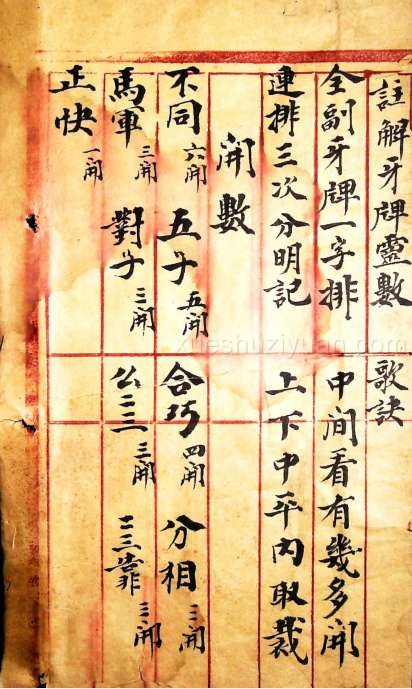 註解牙牌靈數 歌訣
全副牙牌一字排 中间看有幾多開
連排三次分明記 上下中平內取裁
開數
不同 六開 五子 五開 合巧 四開 分相 三開
馬軍 三開 對子 三開 么二三 三開 二三靠 三開
正快 一開
xueshuziyuan.com